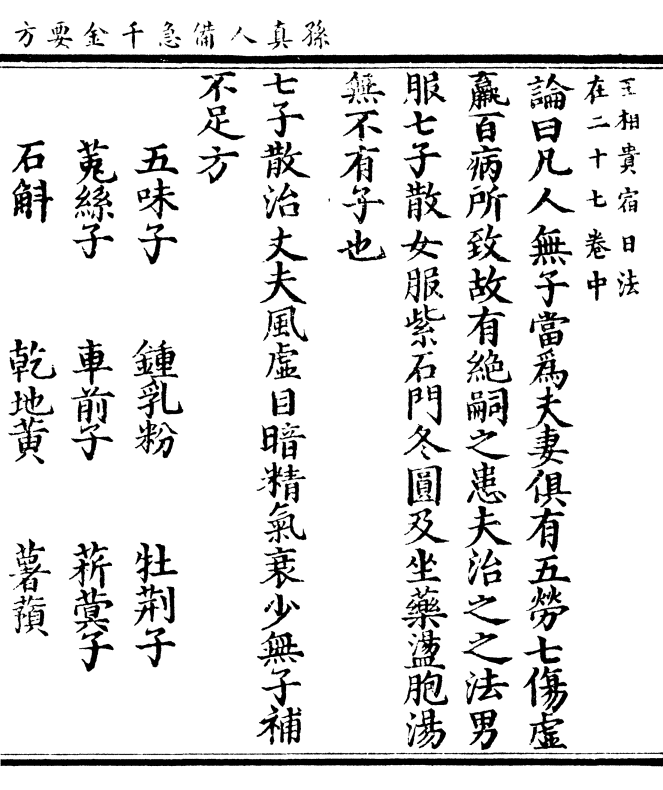 孫真人備急千金要方
王相貴宿日法
在二十七卷中
論曰凡人無子當爲夫妻俱有五勞七傷虛
羸百病所致故有絶嗣之患夫治之之法男
服七子散女服紫石門冬圓及坐藥盪胞湯
無不有子也
七子散治丈夫風虛目暗精氣衰少無子補
不足方
五味子 鍾乳粉 牡荆子
菟絲子 車前子 菥蓂子
石斛 乾地黄 薯蕷